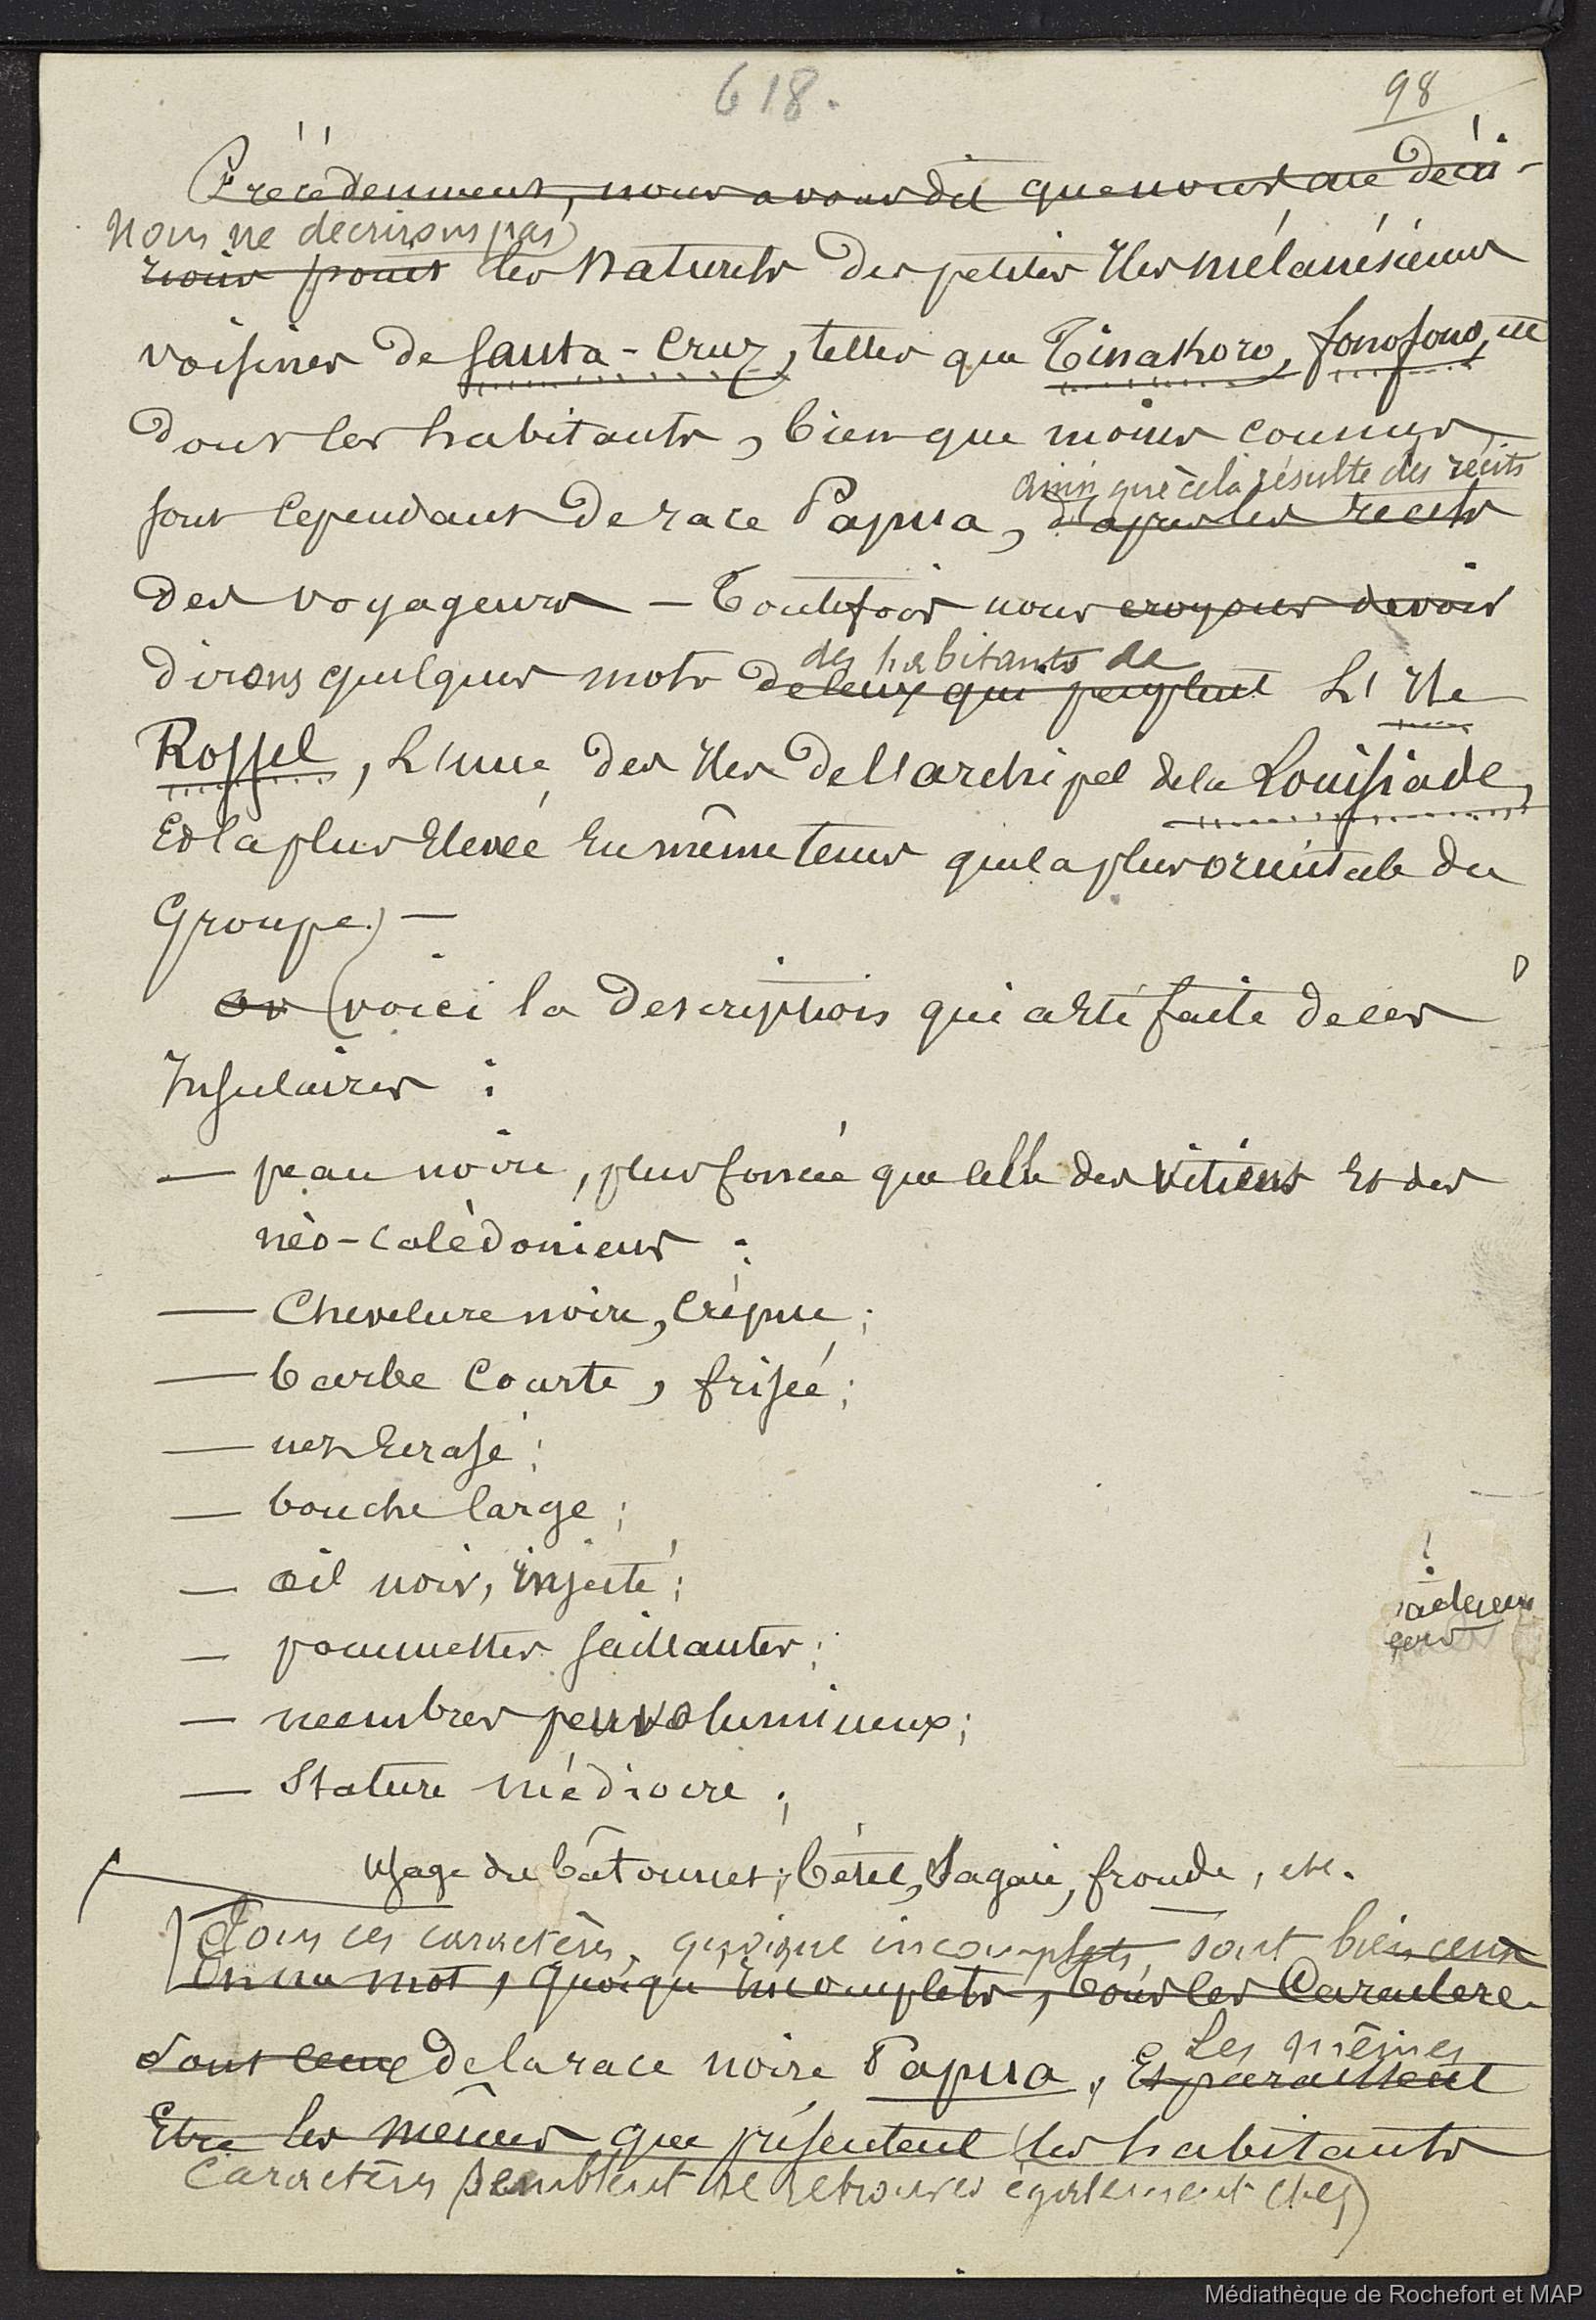 618.
98
Précédemment, nous avons dit que nous ne décri-
Nous ne décrirons pas
rions point les naturels des petites Iles mélanésiennes
voisines de Santa-Cruz, telles que Tinakoro, fonofono,
dont les habitants, bien que moins connus,
ainsi que cela résulte des récits
sont cependant de race Papua, d'après les récits
des voyageurs — Toutefois nous croyons devoir
des habitants de
dirons quelques mots de ceux qui peuplent L'Ile
Rossel, L'une des Iles de l'archipel de la Louisiade,
Et la plus Elevée En même tems que la plus orientale du
Groupe. —
Or (voici la description qui a Eté faite de ces
Insulaires :
— peau noire, plus foncée que celle des vitiens Et des
néo-calédoniens :
— Chevelure noire, Crépue ;
— barbe Courte, frisée ;
— nez Ecrasé ;
— bouche large ;
— œil noir, injecté ;
— pommettes saillantes ;
— membres peu volumineux ;
— Stature médiocre ;
usage du bâtonnet ; bétel, Sagaie, fronde, etc.
Tous ces caractères, quoique incomplets, sont bien ceux
En un mot, quoiqu'incomplets, tous les Caractère
Sont ceux de la race noire Papua, Et paraissent
Les mêmes
Etre les mêmes que présentent les habitants
Caractères semblent se retrouver également chez)
Médiathèque de Rochefort et MAP